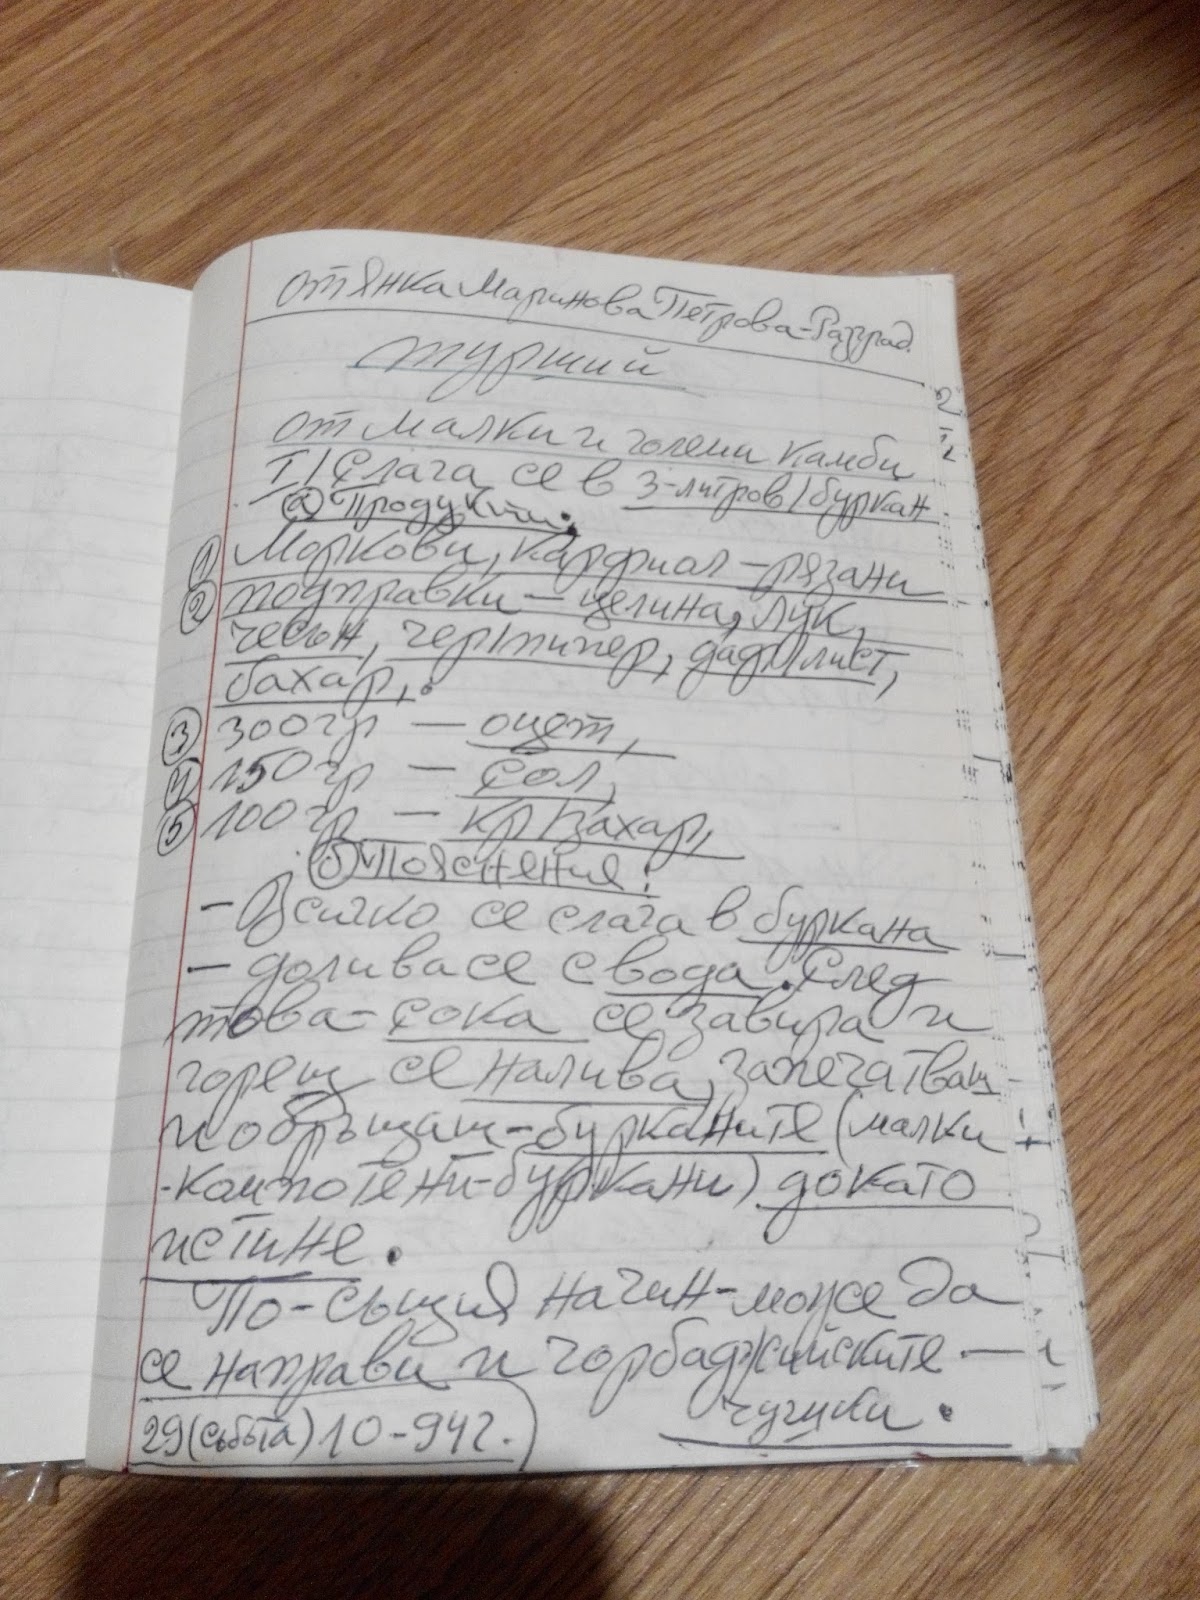 от Янка Маринова Петрова-Разград.
турший
от малки и големи камби
I/ Слага се в 3-литров/буркан
а) Продукти:
1) Моркови, карфиол - рязани
2) подправки - целина, лук,
чесън, чер/пипер, даф/лист,
бахар,.
3) 300гр - оцет,
4) 150гр - сол,
5) 100гр - кр/захар,
б) Пояснение:
- Всичко се слага в буркана
- долива се с вода. След
това - сока се завира и
горещ се налива, запечатващ
и обръщащ - бурканите (малки
- компотени - буркани) докато
истине.
По-същия начин - може да
се направи и чорбаджийските -
чушки.
29 (събота) 10-94г.